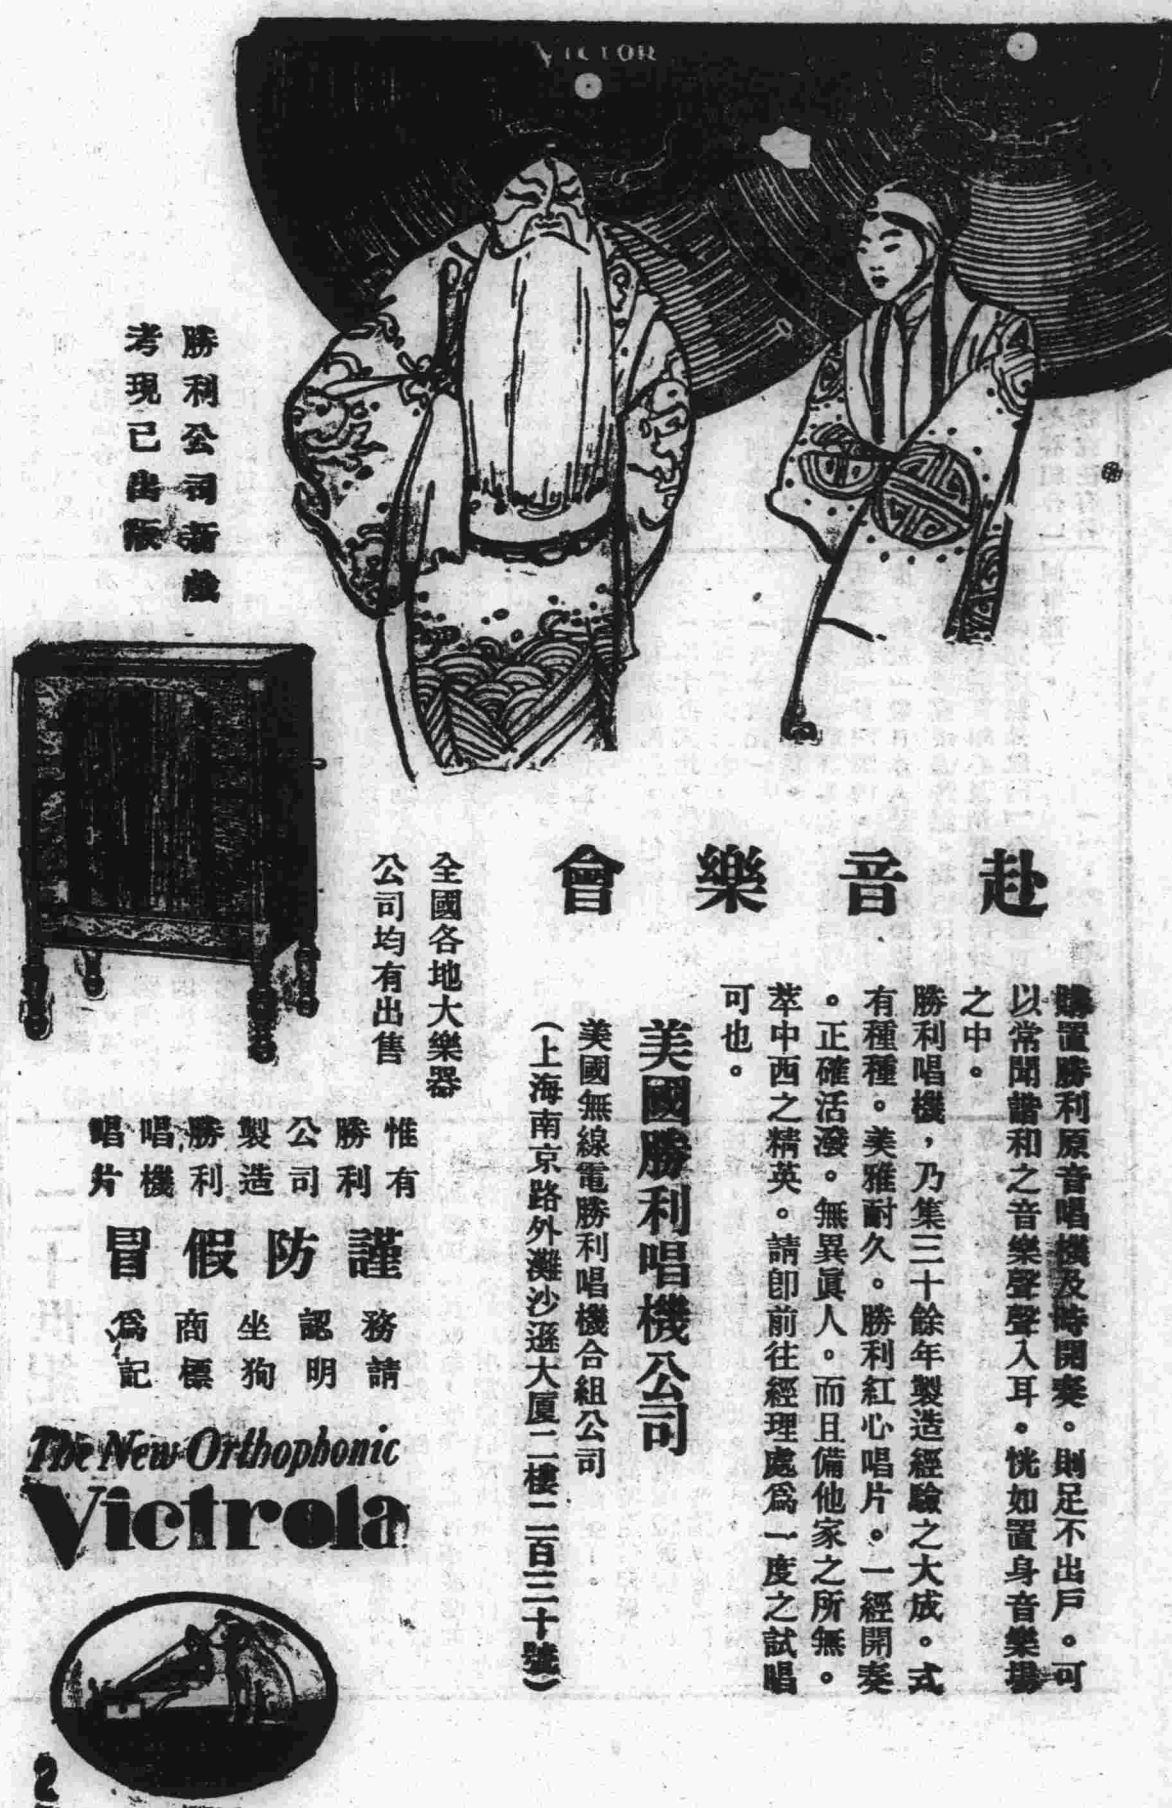 VICTOR
勝利公司新戲
考現已出版
赴音樂會
購置勝利原音唱機及時開奏。則足不出戶。可
以常聞諧和之音樂聲聲入耳。恍如置身音樂場
之中。
勝利唱機，乃集三十餘年製造經驗之大成。式
有種種。美雅耐久。勝利紅心唱片。一經開奏
。正確活潑。無異眞人。而且備他家之所無。
萃中西之精英。請卽前往經理處爲一度之試唱
可也。
美國勝利唱機公司
美國無線電勝利唱機合組公司
（上海南京路外灘沙遜大厦二樓二百三十號）
全國各地大樂器
公司均有出售
惟有
勝利
公司
製造
勝利
唱機
唱片
謹防假冒
務請
認明
坐狗
商標
爲記
The New Orthophonic
Victrola
2